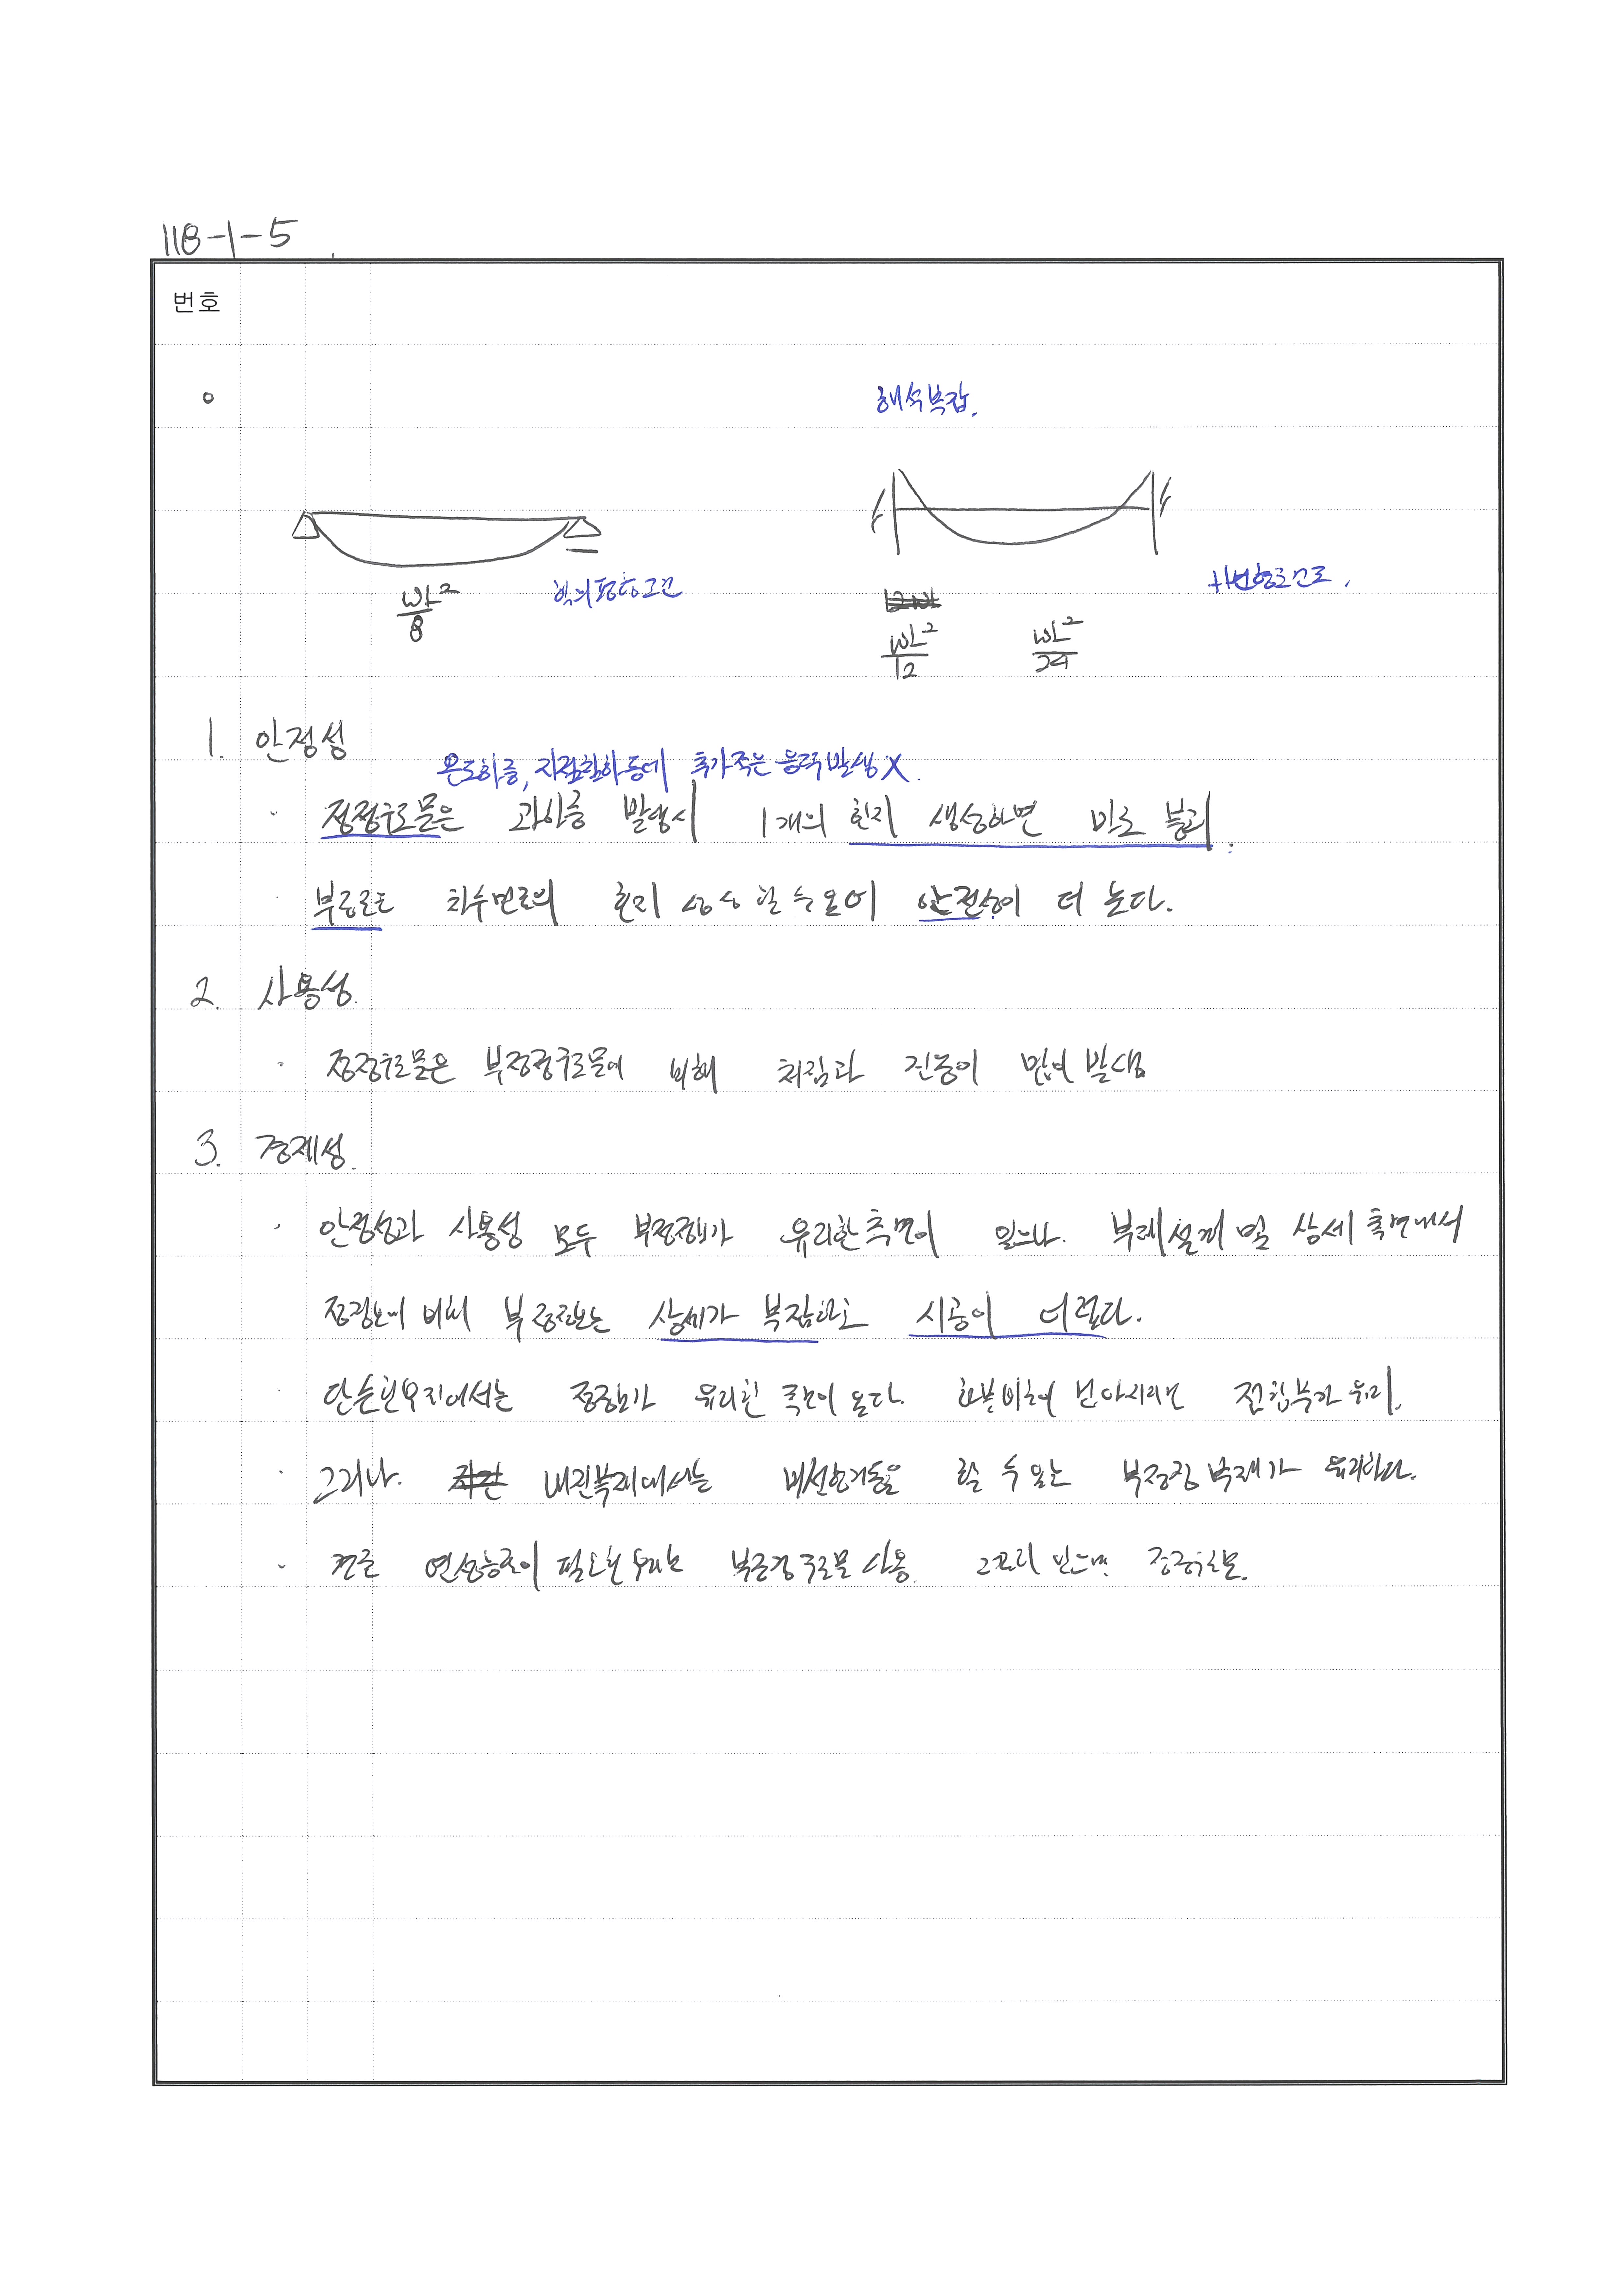 118-1-5
번호
해석복잡.
wL²/8
힘의 평형조건
wL²/12
wL²/24
1. 안정성
온도하중, 지점침하 등에 추가적는 응력발생X.
정정구조물은 과하중 발생시 1개의 힌지 생성하면 바로 붕괴.
힌지 생성 할 수 있어 안전성이 더 높다.
2. 사용성.
정정구조물은 부정정구조물에 비해 처짐과 진동이 많이 발생
3. 경제성.
안정성과 사용성 모두 부정정보가 유리한 측면이 있으나. 부재설계 및 상세 측면에서
정정보에 비해 부정정보는 상세가 복잡하고 시공이 어렵다.
단순한 정정보가 유리한 측면이 있다. 접합부가 유리.
그러나. 내진부재에서는 비선형거동을 할 수 있는 부정정 부재가 유리하다.
연성능력이 필요한 부정정 구조물 사용. 그렇지 않으면 정정구조물.